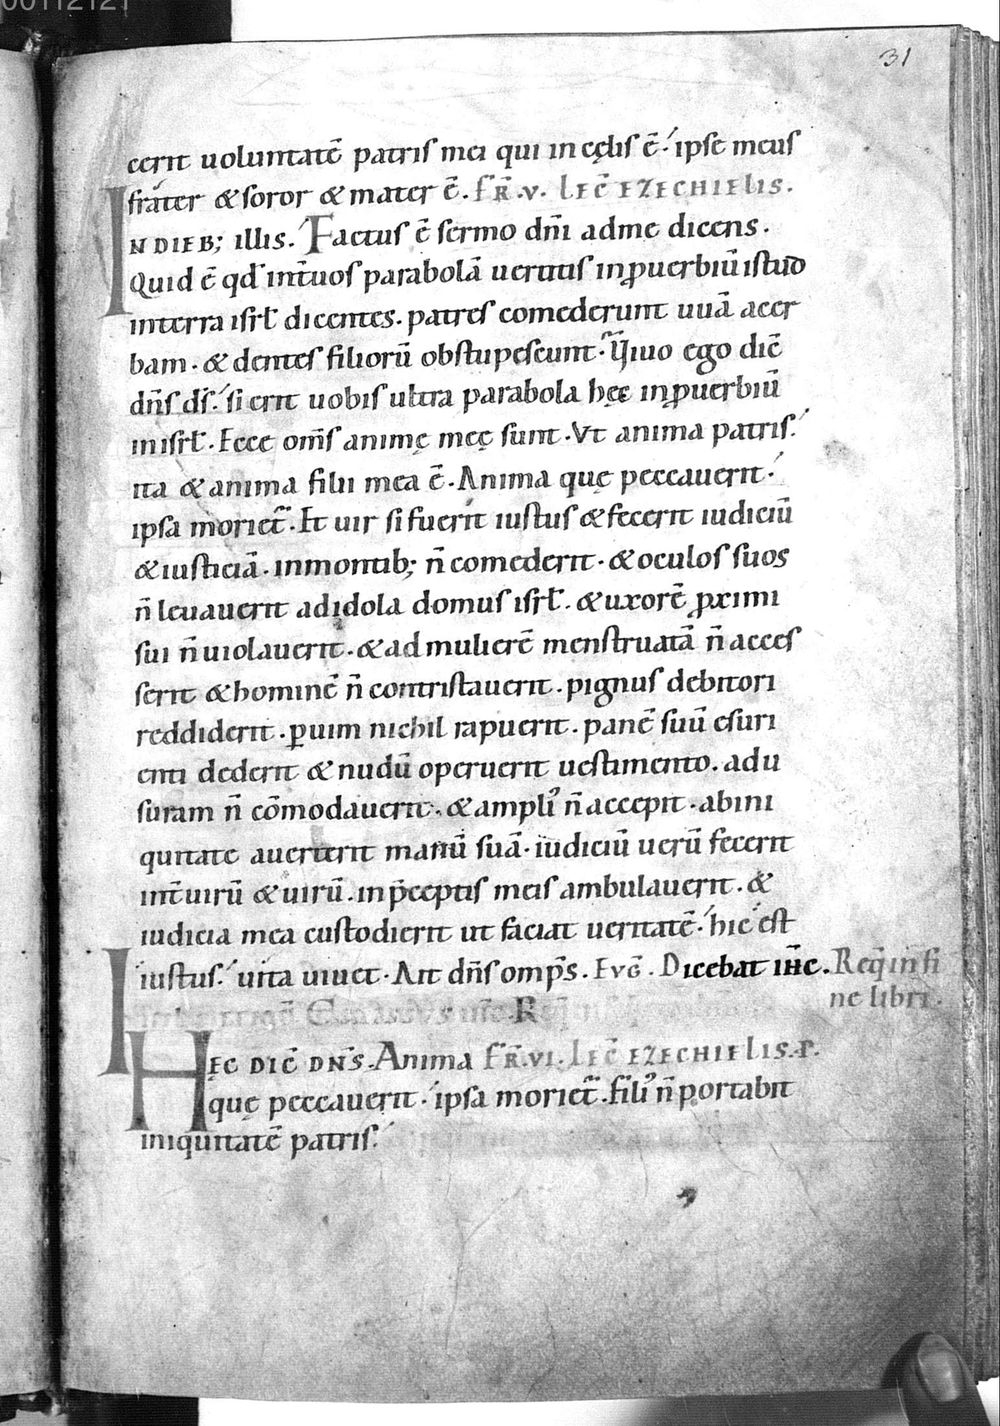 00112121
31
cerit uoluntatē patris mei qui in cęlis ē. ipse meus
frater & soror & mater ē. FR̄.V. LEC̄ EZECHIELIS.
IN DIEB; illis. Factus ē sermo dn̄i ad me dicens.
Quid ē qd̄ int̄ uos parabolā uertitis in ꝓuerbiū istud
in terra isrl̄ dicentes. patres comederunt uuā acer
bam. & dentes filiorū obstupescunt. Viuo ego dic̄
dn̄s ds̄. si erit uobis ultra parabola hęc in ꝓuerbiū
in isrl̄. Ecce om̄s animę meę sunt. Vt anima patris.
ita & anima filii mea ē. Anima quę peccauerit.
ipsa moriet̄. Et uir si fuerit iustus & fecerit iudiciū
& iusticiā. in montib; n̄ comederit. & oculos suos
n̄ leuauerit ad idola domus isrl̄. & uxorē ꝓximi
sui n̄ uiolauerit. & ad mulierē menstruatā n̄ acces
serit & hominē n̄ contristauerit. pignus debitori
reddiderit. ꝑ uim nichil rapuerit. panē suū esuri
enti dederit & nudū operuerit uestimento. ad u
suram n̄ cōmodauerit. & ampli᾽ n̄ accepit. ab ini
quitate auerterit manū suā. iudiciū uerū fecerit
int̄ uirū & uirū. in p̄ceptis meis ambulauerit. &
iudicia mea custodierit ut faciat ueritatē. hic est
iustus. uita uiuet. Ait dn̄s omp̄s. EVḠ. Dicebat ih̄c. Req̄ in fi
ne libri.
R
HEC DIC̄ DN̄S. Anima FR̄.VI. LEC̄ EZECHIELIS.P.
quę peccauerit. ipsa moriet̄. fili᾽ n̄ portabit
iniquitatē patris.